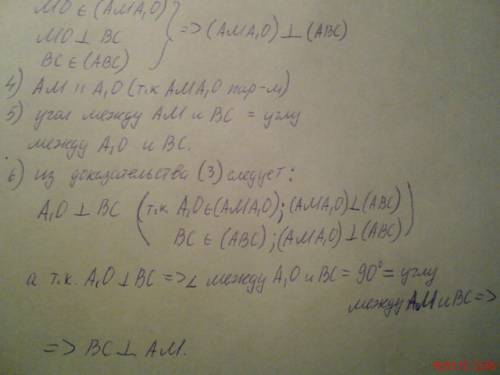 MO ∈ (AMA₁O)
MO ⊥ BC } => (AMA₁O) ⊥ (ABC)
BC ∈ (ABC)
4) AM || A₁O (т.к AMA₁O пар-м)
5) угол между AM и BC = углу
между A₁O и BC.
6) из доказательства (3) следует:
A₁O ⊥ BC (т.к. A₁O ∈ (AMA₁O); (AMA₁O) ⊥ (ABC)
BC ∈ (ABC); (AMA₁O) ⊥ (ABC))
а т.к. A₁O ⊥ BC => ∠ между A₁O и BC = 90° = углу
между AM и BC =>
=> BC ⊥ AM.